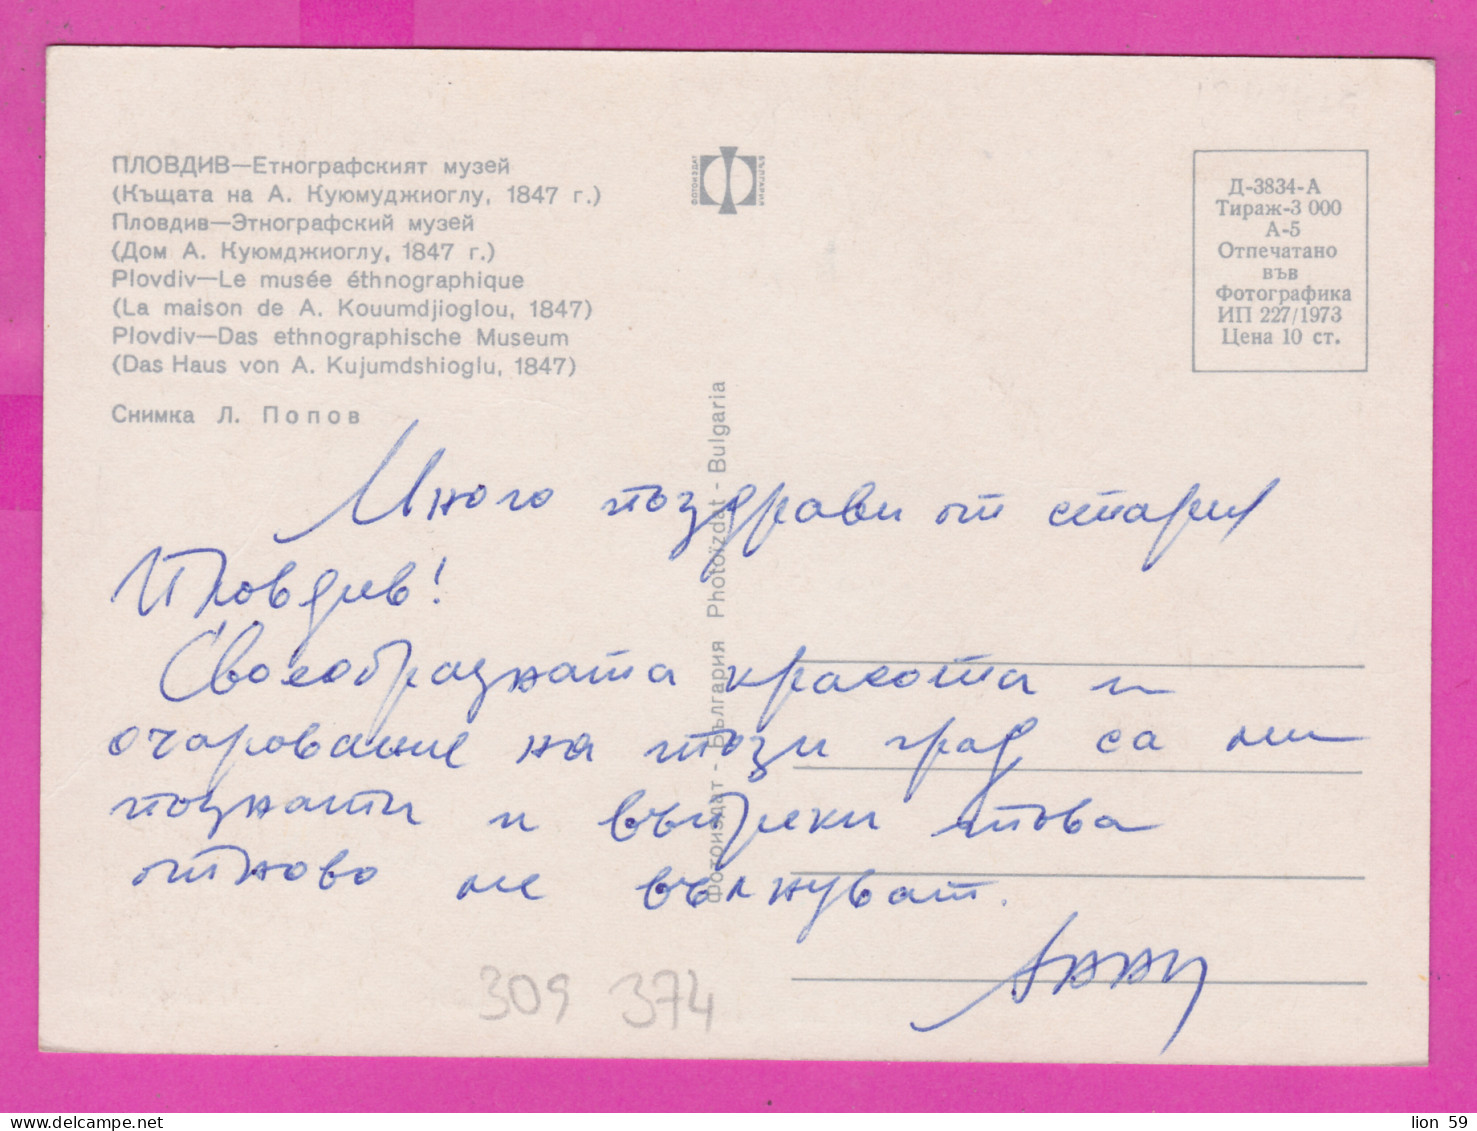 ПЛОВДИВ—Етнографският музей
(Къщата на А. Куюмуджиоглу, 1847 г.)
Пловдив—Этнографский музей
(Дом А. Куюмджиоглу, 1847 г.)
Plovdiv—Le musée éthnographique
(La maison de A. Kouumdjioglou, 1847)
Plovdiv—Das ethnographische Museum
(Das Haus von A. Kujumdshioglu, 1847)
Снимка Л. Попов
ФОТОИЗДАТ
БЪЛГАРИЯ
Д-3834-А
Тираж-3 000
А-5
Отпечатано
във
Фотографика
ИП 227/1973
Цена 10 ст.
Фотоиздат - България Photoïzdat - Bulgaria
Много поздрави от стария
Пловдив!
Своеобразната красота и
очарование на този град са ми
познати и въпреки това
отново ме вълнуват.
309 374
lion 59